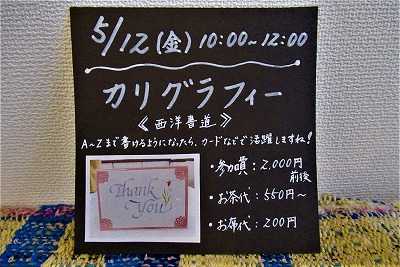 5/12(金) 10:00~12:00
カリグラフィー
《西洋書道》
A~Zまで書けるようになったら、カードなどで活躍しますね!
Thank
You
・参加費:2,000円
前後
・お茶代:550円~
・お席代:200円